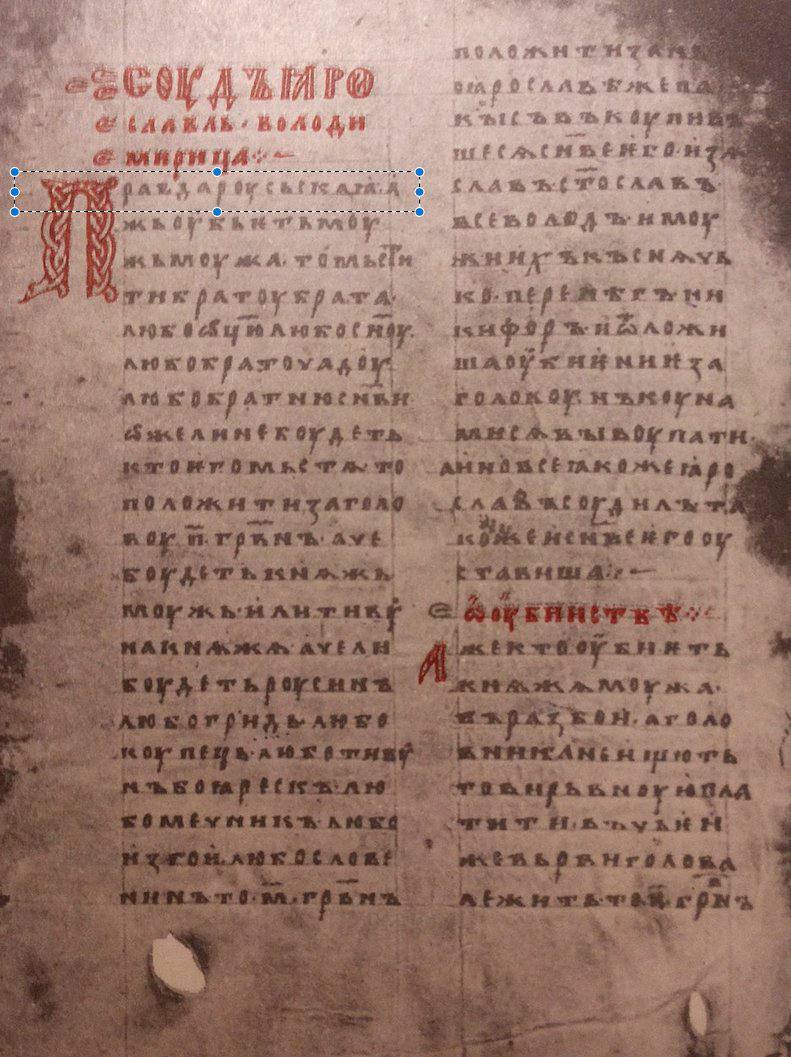 СОУДЪ ꙖРО
СЛАВЛЬ · ВОЛОДИ
МИРИЦА
ПРАВДА РОУСЬСКАꙖ · А
ЖЬ ОУБЬЕТЬ МОУ
ЖЬ МОУЖА · ТО МЬСТИ
ТИ БРАТОУ БРАТА ·
ЛЮБО ѠЦЮ ЛЮБО СН҃ОУ ·
ЛЮБО БРАТОУЧАДОУ
ЛЮБО БРАТНЮ СН҃ВИ
ѠЖЕ ЛИ НЕ БОУДЕТЬ
КТО ѤГО МЬСТѦ ТО
ПОЛОЖИТИ ЗА ГОЛО
ВОУ · П҃ · ГРВ҃НЪ · АЧЕ
БОУДЕТЬ КНѦЖЬ
МОУЖЬ · ИЛИ ТИВОУ
НА КНѦЖѦ · АЧЕ ЛИ
БОУДЕТЬ РОУСИНЪ
ЛЮБО ГРИДЬ · ЛЮБО
КОУПЕЦЬ · ЛЮБО ТИВОУ
НЪ БОꙖРЕСКЪ · ЛЮ
БО МЕЧНИКЪ · ЛЮБО
ИЗГОИ · ЛЮБО СЛОВЕ
НИНЪ ТО · М҃ · ГРВ҃НЪ
ПОЛОЖИТИ ЗА НЬ
ꙖРОСЛАВѢ ЖЕ ПА
КЫ СЪВЪКОУПИВЪ
ШЕСѦ СН҃ВЕ ѤГО · ИЗѦ
СЛАВЪ · СТ҃ОСЛАВЪ ·
ВСЕВОЛОДЪ · И МОУ
ЖИ ИХЪ КЪСНѦЧЬ
КО · ПЕРЕНѢГЪ · НИ
КИФОРЪ · И ѾЛОЖИ
ША ОУБИѤНИѤ ЗА
ГОЛОВОУ · НЪ КОУНА
МИ СѦ ВЫВОУПАТИ ·
А ИНО ВСЕ ꙖКОЖЕ ꙖРО
СЛАВЪ СОУДИЛЪ ТА
КОЖЕ И СН҃ВЕ ѤГО ОУ
СТАВИША
Ѡ ОУБИИСТВѢ
АЖЕ КТО ОУБИѤТЬ
КНѦЖѦ МОУЖА ·
ВЪ РАЗБОИ · А ГОЛО
ВНИКА НЕ ИЩЮТЬ
ТО ВИРЬВНОУЮ ПЛА
ТИТИ · ВЪ ЧЬѤИ
ЖЕ ВЬРВИ ГОЛОВА
ЛЕЖИТЬ ТО П҃ · ГРВ҃НЪ